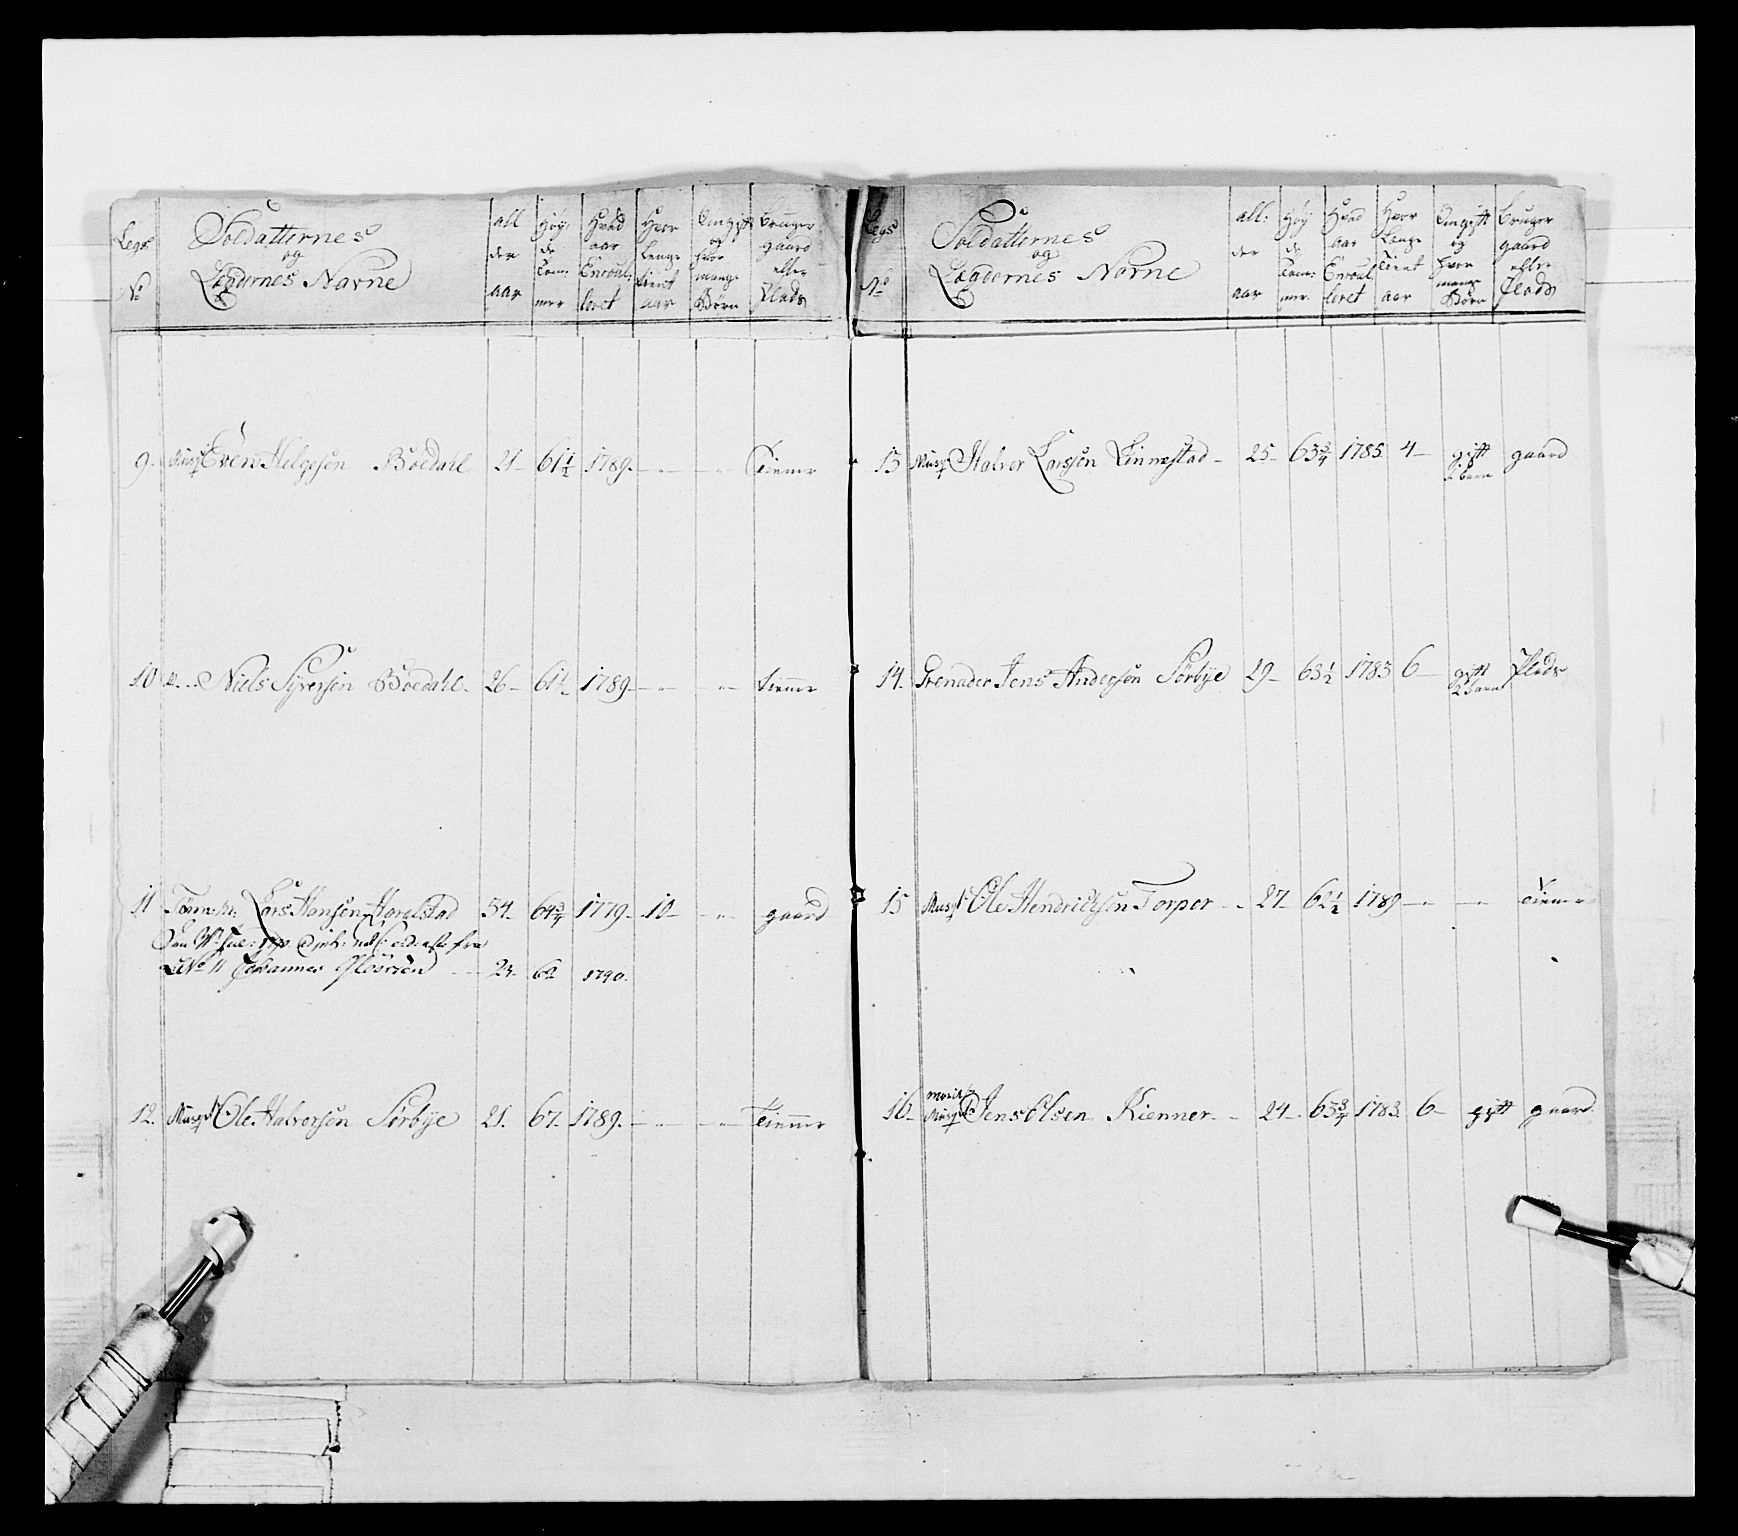 Legs No | Soldatternes og Lægdernes Navne | all der aar | Høy de Tom: mer | Hvad aar Enroul: leret | Hvor Lenge tient aar | Om gift og hvor mange Børn | Bruger gaard eller Plads
9. Musq Even Helgesen Boedahl 21 61 1/2 1789 — " — " Tiener
10 Niels Syversen Boedahl. 26 61 1/2 1789 — " — " — tiener
11 Lars Hansen Haralstad 54 64 3/4 1779 10 — " gaard
No 11 Johannes 23 62 1790.
12. Musq Ole Halvorsen Sørbye 21. 67. 1789. — " — " — Tiener
Legs No | Soldatternes og Lægdernes Navne | all: der aar | Høy de Tom: mer. | Hvad aar Enroul leret | Hvor Lenge Tient aar | Om gift og hvor mange Børn | Bruger gaard eller Plads
13 Musq Halvor Larssen Linnestad — 25 63 3/4 1785. 4 — gift barn gaard
14. Grenader Jens Andersen Sørbye 29 63 1/2 1783 6 — gift 2 barn Plads
15 Musq Ole Hendrichsen Torper 27. 62 1/2 1789 — " — " — Tiener
16 Musq Jens Olsen Kienner — 24 63 3/4 1783. 6 — gift gaard.